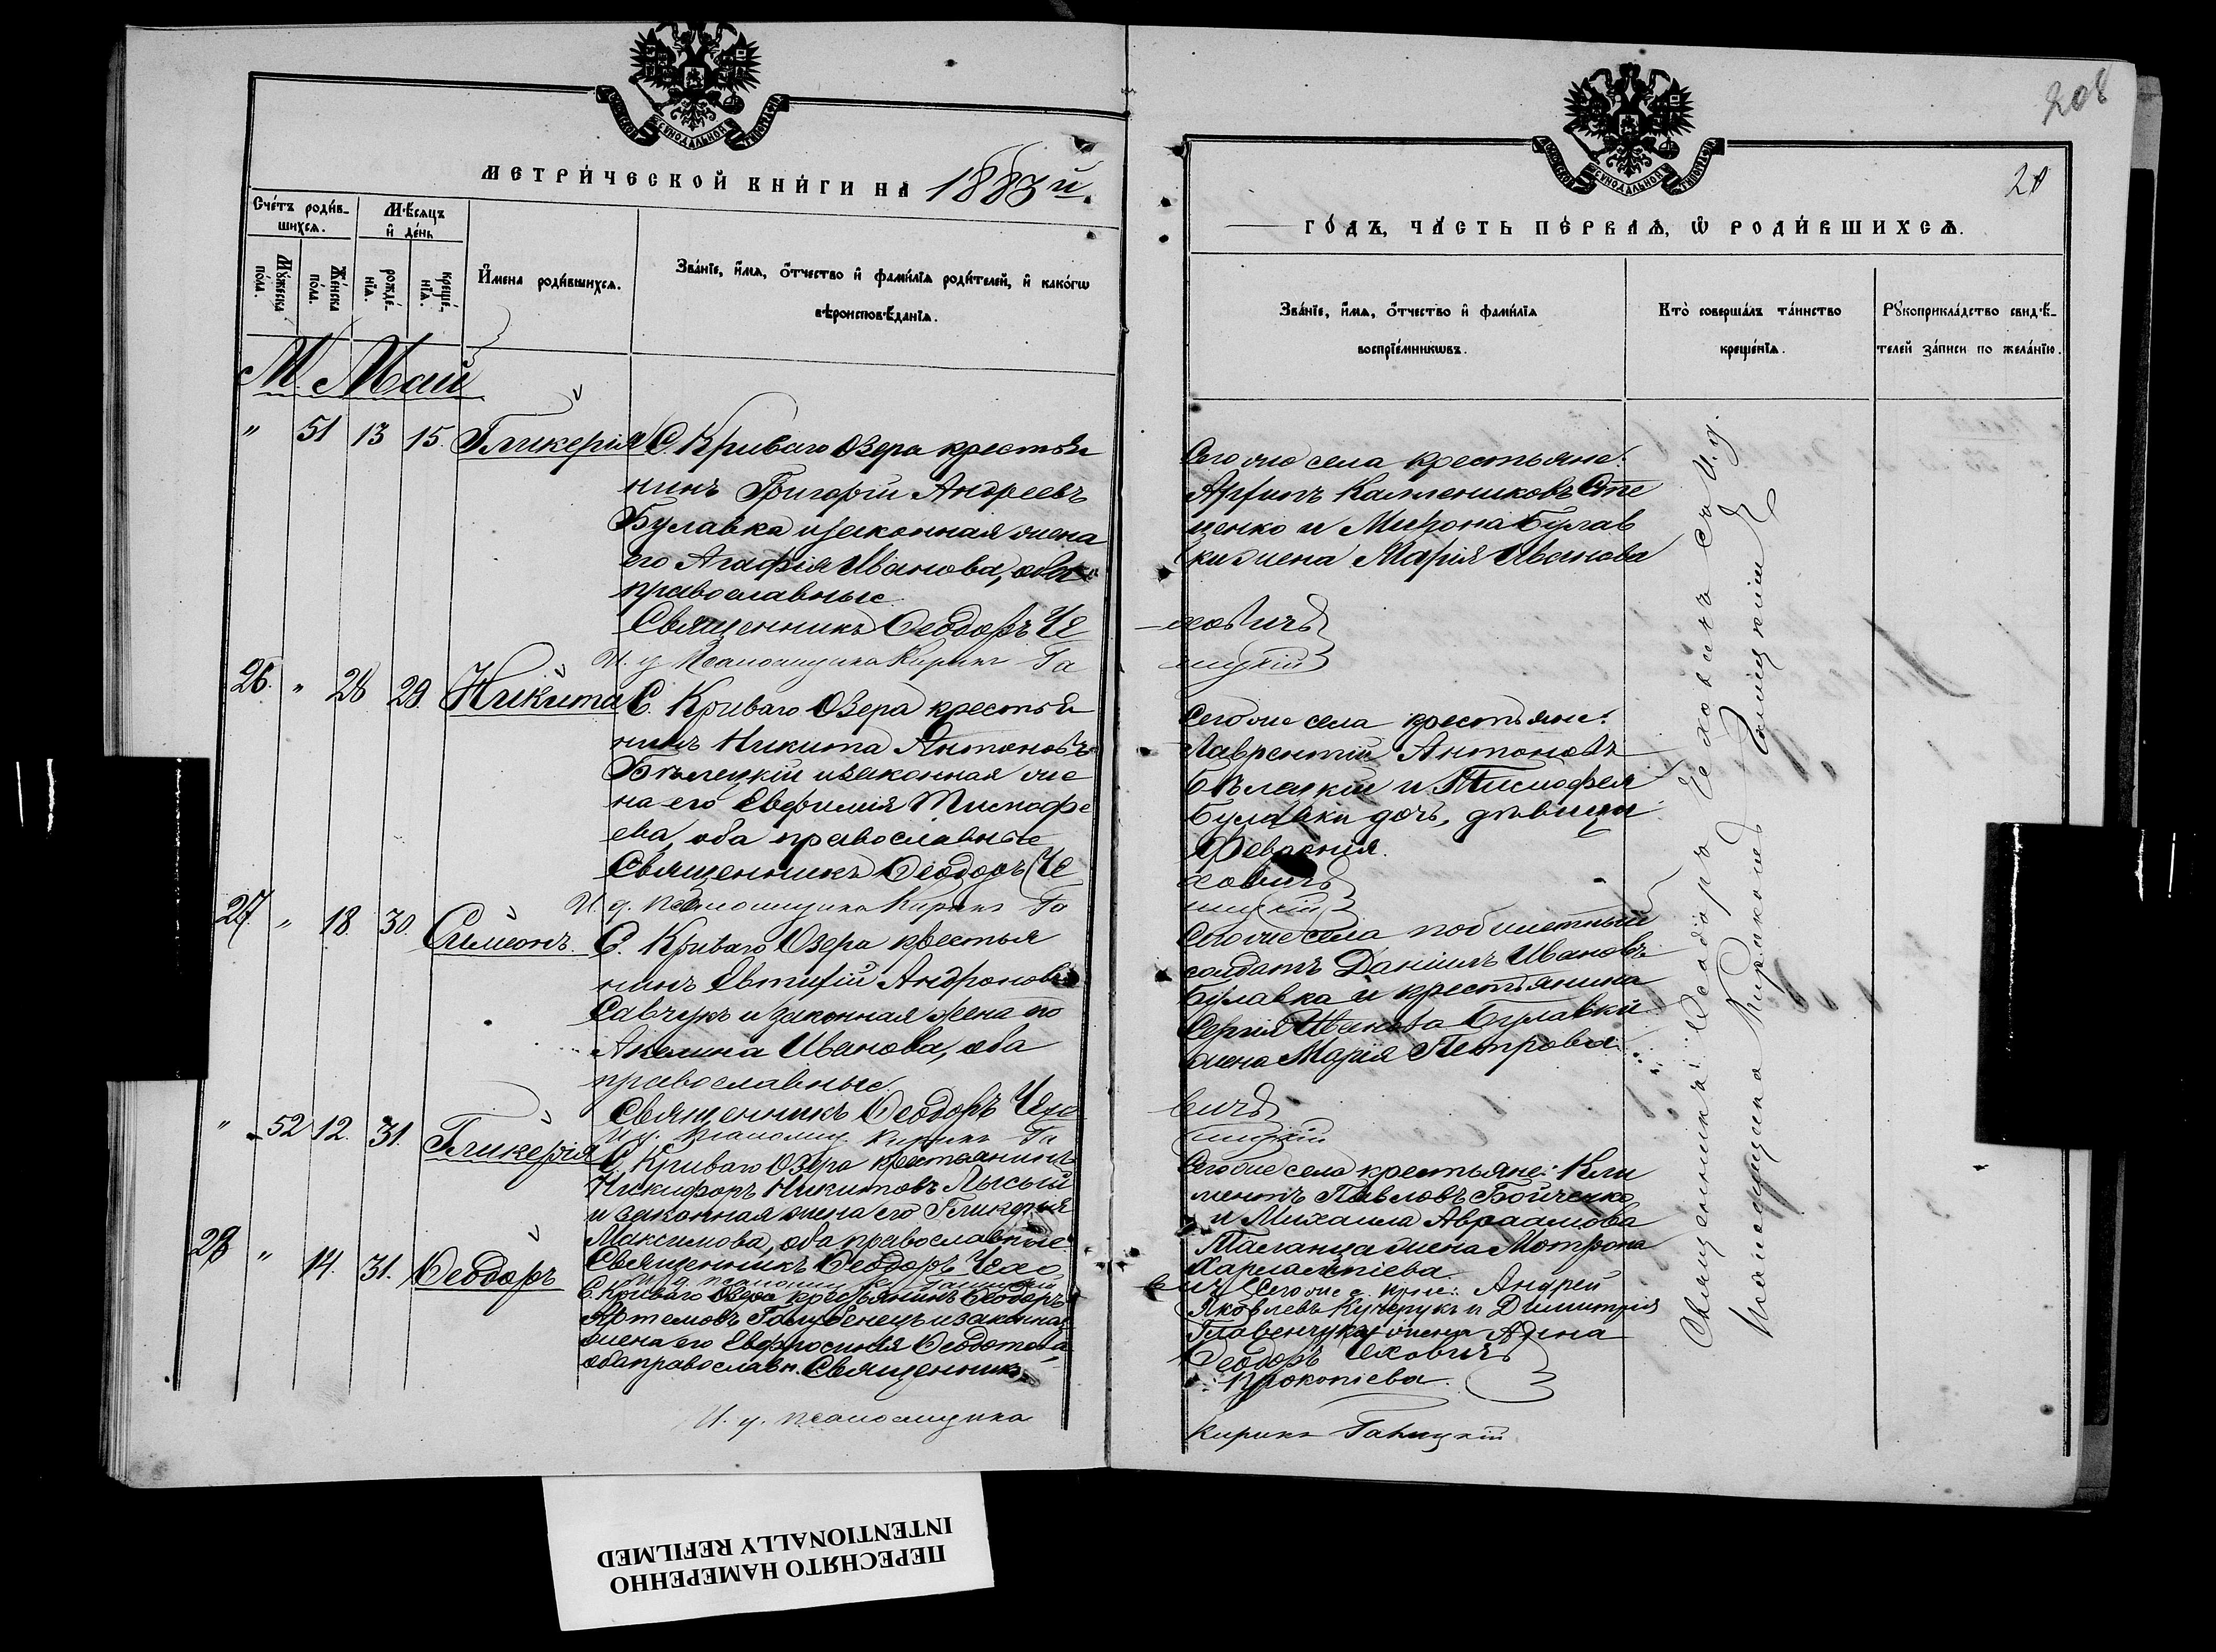 МЕТРИ́ЧЕСКОЙ КНИ́ГИ НА 1883й.
Сче́тъ роди́в-
шихсѧ.
Мѣ́сяцъ
и҆ де́нь
Мꙋ́жеска
по́ла.
Же́нска
по́ла.
рожде́-
нїѧ.
креще́-
нїѧ.
И҆мена роди́вшихсѧ.
Зва́нїе, и҆́мѧ, о҆́тчество и҆ фами́лїѧ роди́телей, и҆ како́гѡ
вѣроисповѣ́данїѧ.
М. Май
" 51 13 15. Гликерія
С. Криваго Озера крестья
нинъ Григорій Андреевъ
Булавка и законная жена
его Агафія Иванова, оба
православные.
Священникъ Ѳеодоръ Че
И. д. Псаломщика Кирикъ Га
26. " 28 29. Никита
С. Криваго Озера крестья
нинъ Никита Антоновъ
Бѣлецкій и законная же
на его Евфимія Тимофе
ева, оба православные
Священникъ Ѳеодоръ Че
И. д. Псаломщика Кирикъ Га
27. " 18. 30. Симеонъ.
С. Криваго Озера крестья
нинъ Евтихій Андроновъ
Савчукъ и законная жена его
Акилина Иванова, оба
православные.
Священникъ Ѳеодоръ Чехо
И. д. Псаломщ. Кирикъ Га
" 52 12. 31. Гликерія
С. Криваго Озера крестьянинъ
Никифоръ Никитовъ Лысый
и законная жена его Гликерія
Максимова, оба православные
Священникъ Ѳеодоръ Чехо
И. д. псаломщ. К. Галицкій
28 " 14. 31. Ѳеодоръ
С. Криваго Озера крестьянинъ Ѳеодоръ
Артемовъ Голубенецъ и законная
жена его Евфросинія Ѳеодотова
оба православн. Священникъ
И. д. псаломщика
208
20
ГО́ДЪ, ЧА́СТЬ ПЕ́РВАѦ, Ѡ҆ РОДИ́ВШИХСѦ.
Зва́нїе, и҆́мѧ, о҆́тчество и҆ фами́лїѧ
воспрїе́мникѡвъ.
Кто̀ соверша́лъ та́инство
креще́нїѧ.
Рꙋкоприкла́дство свидѣ́-
телей за́писи по жела́нїю.
Того же села крестьяне:
Архипъ
ценко и Мирона Булав
ки жена Марія Иванова
ховичъ
лицкій
Того же села крестьяне:
Лаврентій Антоновъ
Бѣлецкій и Тимофея
Булавки дочь, дѣвица
Февронія.
ховичъ
лицкій
Того же села побилетный
солдатъ Даніилъ Ивановъ
Булавка и крестьянина
Сергія Иванова Булавки
жена Марія Петрова
вичъ
лицкій
Того же села крестьяне: Кли
ментъ Павловъ Бойченко
и Михаила Авраамова
Маланца жена Мотрона
Харлампіева.
вичъ Того же с. крес: Андрей
Яковлевъ Кучерукъ и Димитрія
Главенчука жена Анна
Ѳеодоръ Чеховичъ
Прокопіева.
Кирикъ Галицкій
Священникъ Ѳеодоръ Чеховичъ съ И. д.
Псаломщика Кирикомъ Галицкимъ
ПЕРЕСНЯТО НАМЕРЕННО
INTENTIONALLY REFILMED